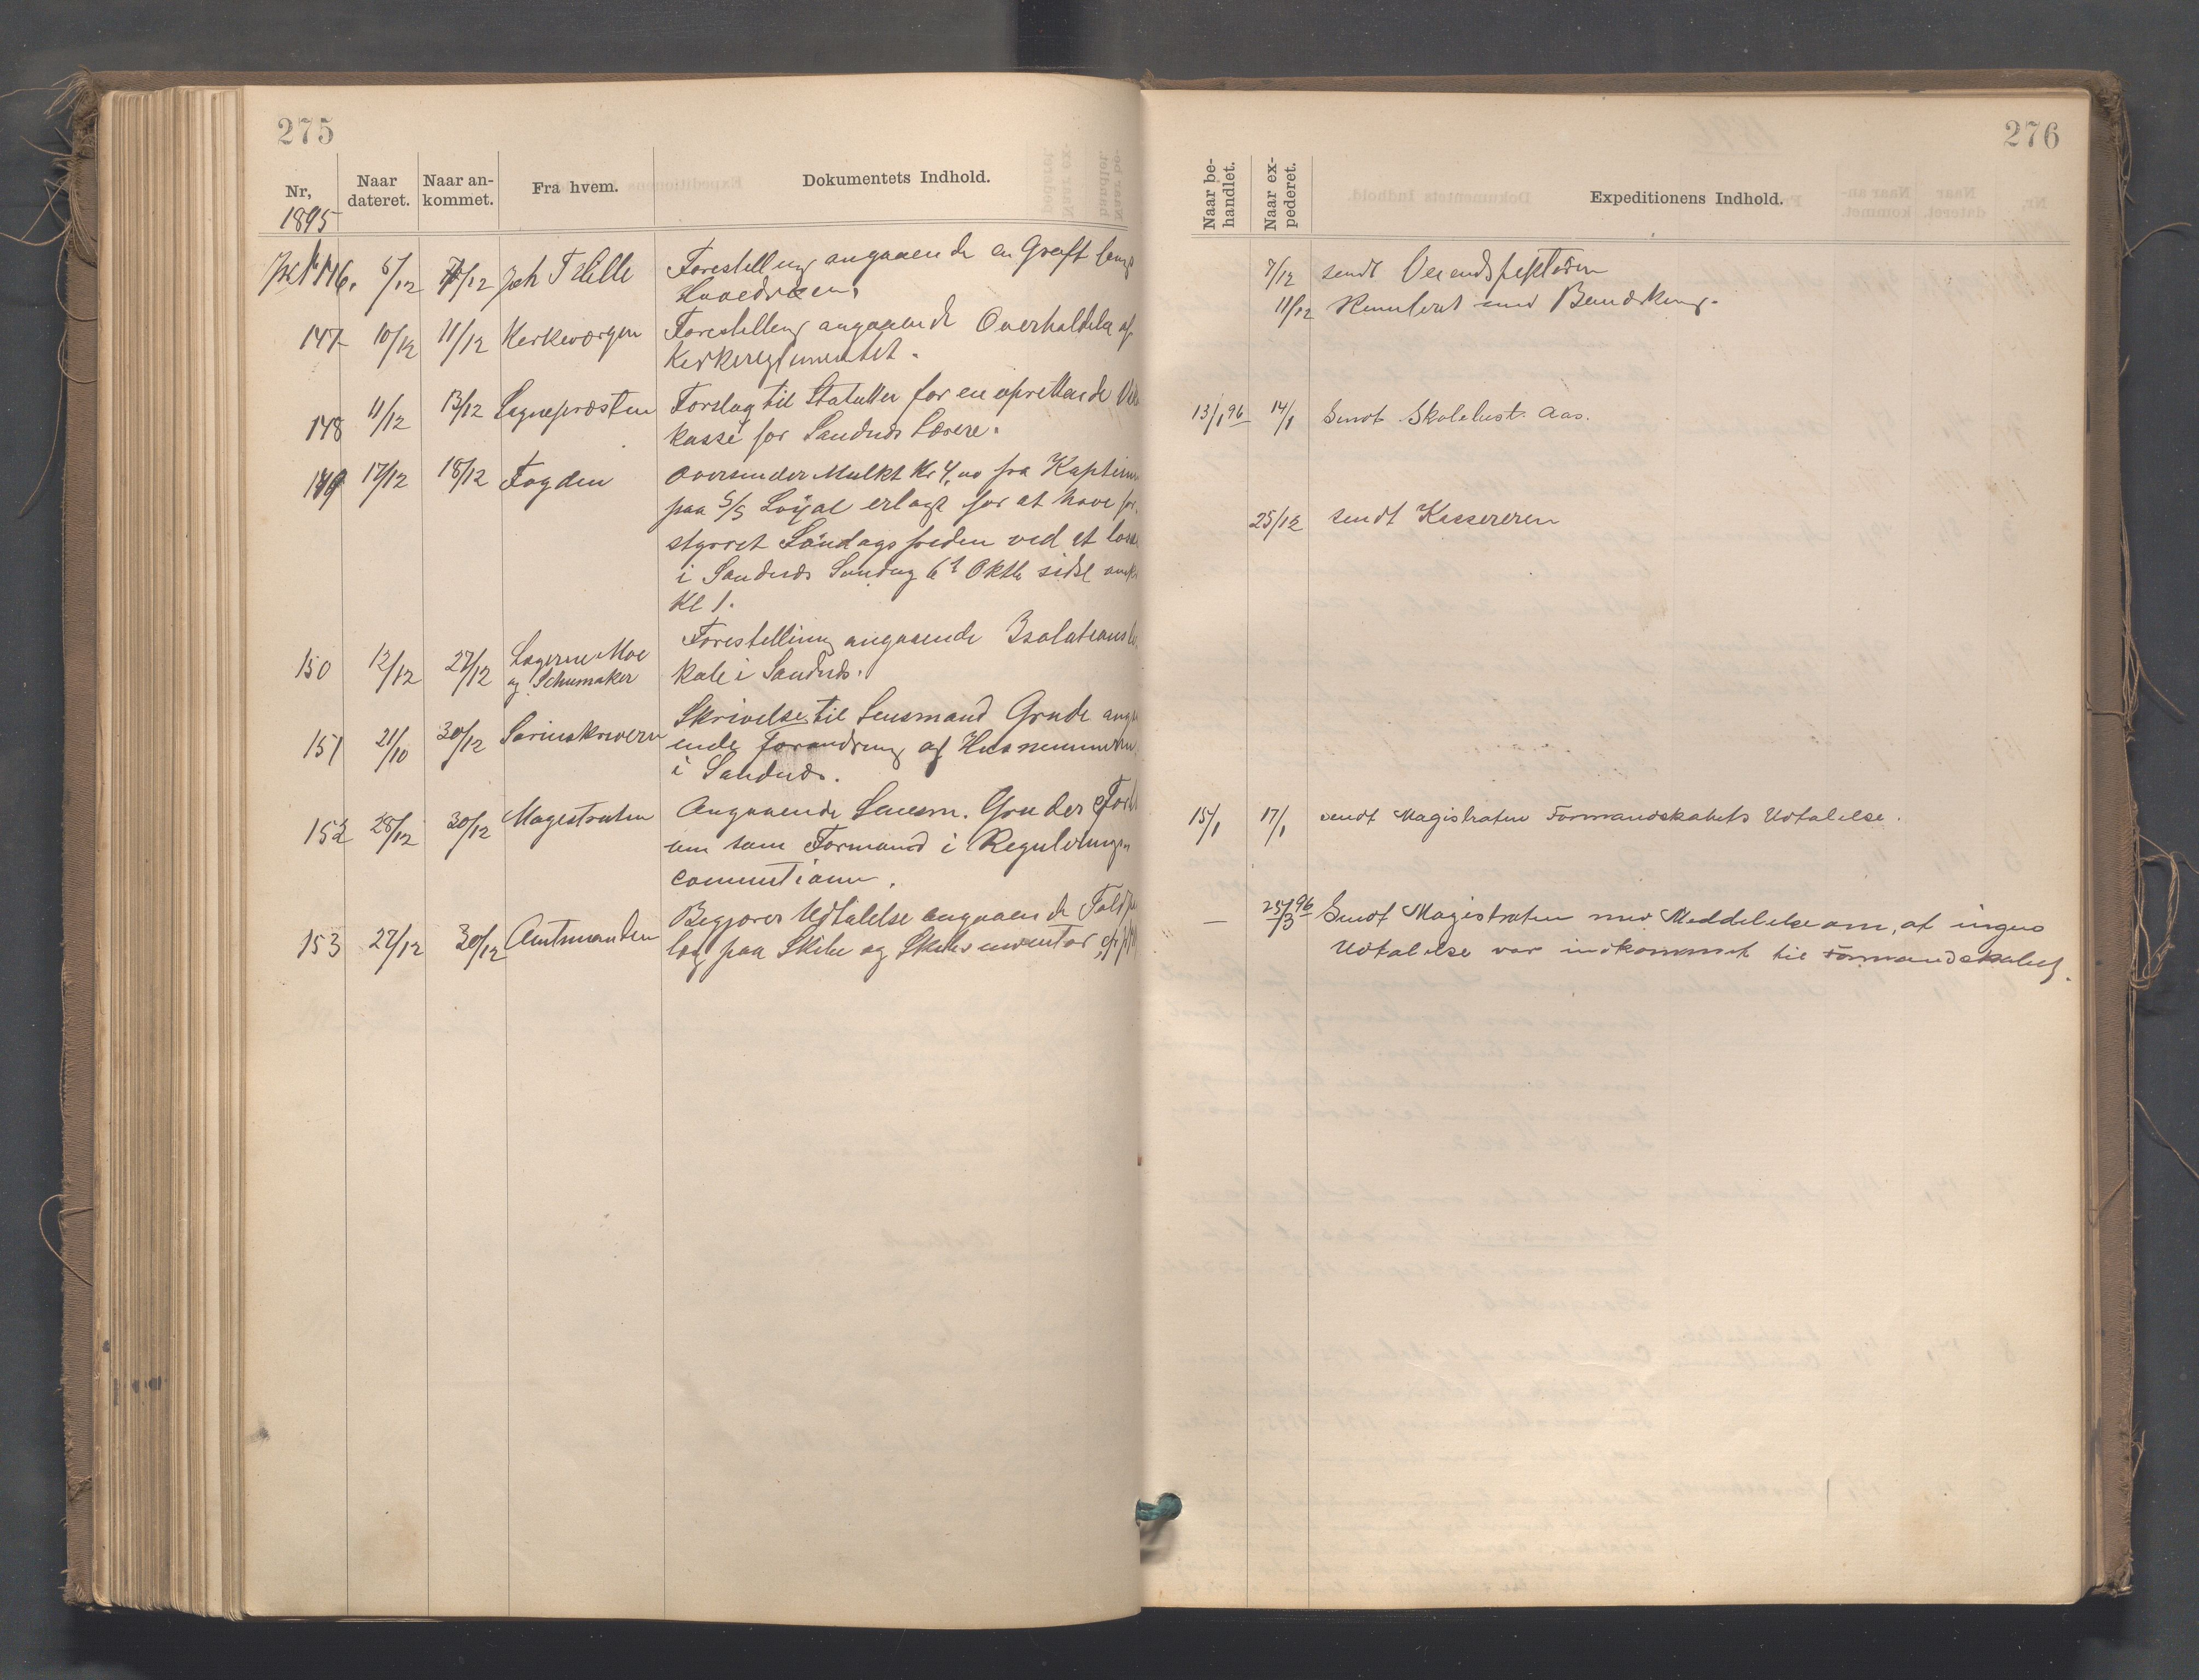 275
Nr,
Naar dateret.
Naar ankommet.
Fra hvem.
Dokumentets Indhold.
1895
146. 5/12 7/12 Joh Trelle Forestilling angaaende en Grøft langs
Hovedveien.
147 10/12 11/12 Kirkeværgen Forestilling angaaende Overholdelse af
Kirkereglementet.
148 11/12 13/12 Sogneprosten Forslag til Statuter for en oprettende
kasse for Sandnes Lærere.
149 17/12 18/12 Fogden Oversender Mulkt Kr 4,00 fra Kapteinen
paa S/S Loyal erlagt for at have for-
styrret Söndagsfreden ved at losse
i Sandnes Sondag 6te Oktb sidst
Kl 1.
150 12/12 27/12 Lægerne Moe Forestilling angaaende Isolationslo
og Schumaker kale i Sandnes.
151 21/10 30/12 Sorinskriveren Skrivelse til Lensmand Grude anga
ende forandring af Husnummerne
i Sandnes.
152 28/12 30/12 Magistraten Angaaende Lensm. Grudes
som Formand i Regulerings
commissionen.
153 27/12 30/12 Amtmanden Begjærer Udtalelse angaaende
paa Skibe og Skibsinventar,
276
Naar behandlet.
Naar expederet.
Expeditionens Indhold.
7/12 sendt Veiinspektøren
11/12 Remiteret med Bemærkning.
13/1 96 14/1 Sendt Skolebest. Aas.
25/12 sendt Kassereren
15/1 17/1 sendt Magistraten Formandskabets Udtalelse.
— 25/3 96 Sendt Magistraten med Meddelelse om, at ingen
Udtalelse var indkommet til Formandskabet.